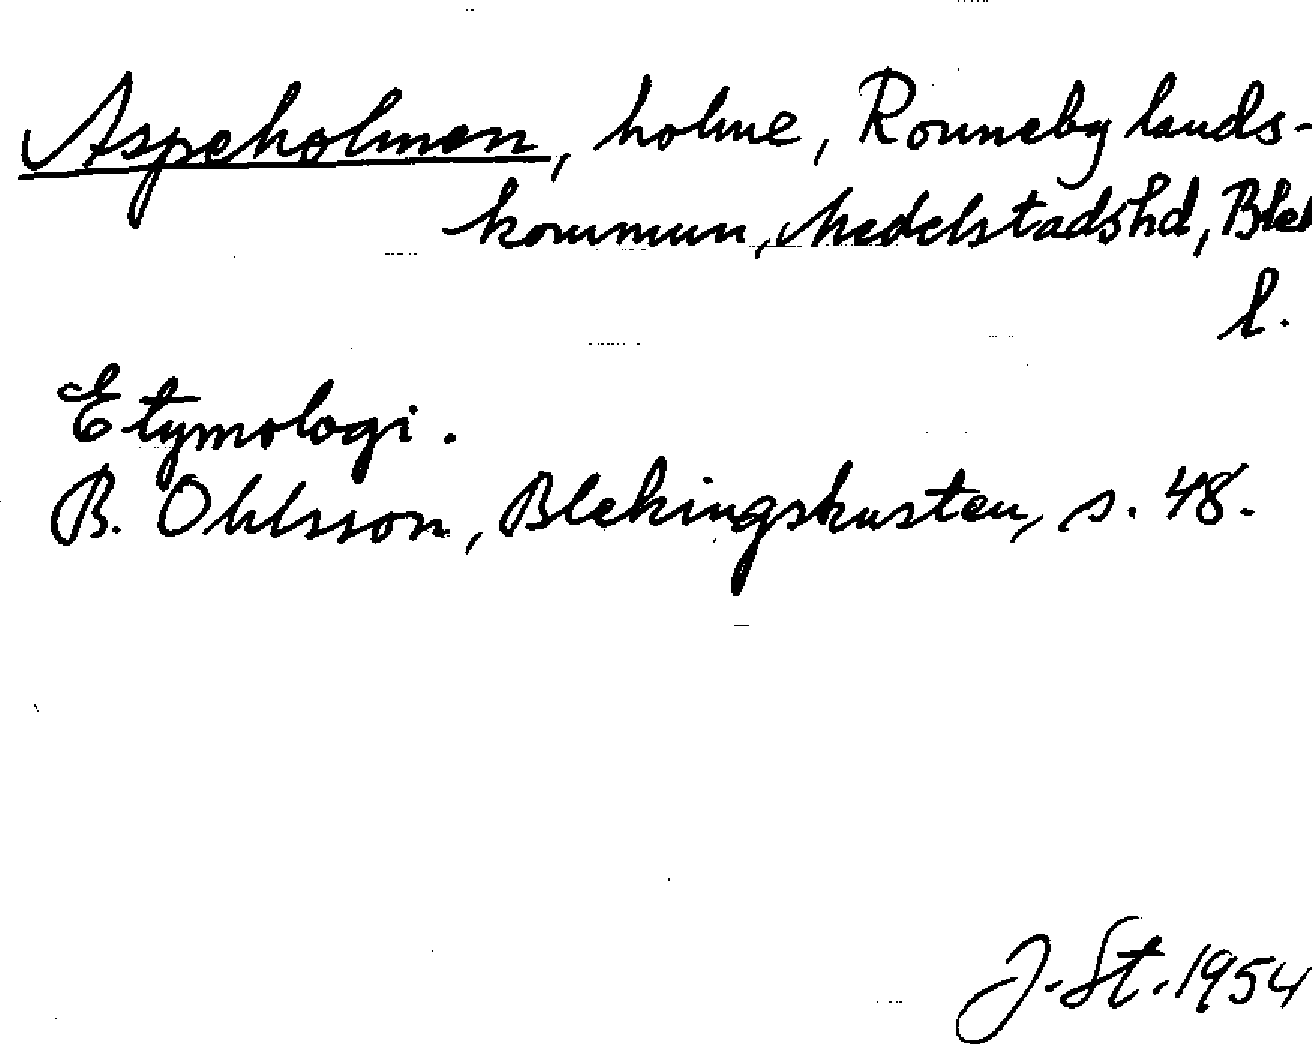 Aspeholmen, holme, Ronneby lands-
kommun, Medelstadshd, Blek
l.
Etymologi.
B. Ohlsson, Blekingskusten, s. 48.
J. St. 1954